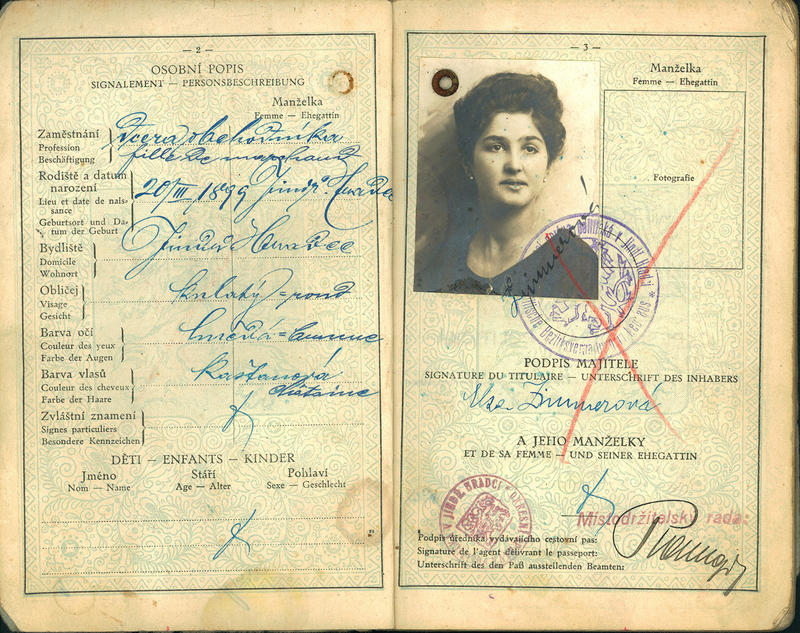 — 2 —
OSOBNÍ POPIS
SIGNALEMENT — PERSONSBESCHREIBUNG
Manželka
Femme — Ehegattin
Zaměstnání
Profession
Beschäftigung
Dcera obchodníka
fille de marchand
Rodiště a datum
narození
Lieu et date de nais-
sance
Geburtsort und Da-
tum der Geburt
20/III 1899 Jindř. Hradec
Bydliště
Domicile
Wohnort
Jindř. Hradec
Obličej
Visage
Gesicht
kulatý = rond
Barva očí
Couleur des yeux
Farbe der Augen
hnědá = brune
Barva vlasů
Couleur des cheveux
Farbe der Haare
Kaštanová
chataine
Zvláštní znamení
Signes particuliers
Besondere Kennzeichen
DĚTI — ENFANTS — KINDER
Jméno
Nom — Name
Stáří
Age — Alter
Pohlaví
Sexe — Geschlecht
— 3 —
Manželka
Femme — Ehegattin
Fotografie
PODPIS MAJITELE
SIGNATURE DU TITULAIRE — UNTERSCHRIFT DES INHABERS
Zimmerová
A JEHO MANŽELKY
ET DE SA FEMME — UND SEINER EHEGATTIN
V JINDŘ. HRADCI
Místodržitelský rada:
Podpis úředníka vydávajícího cestovní pas:
Signature de l'agent délivrant le passeport:
Unterschrift des den Paß ausstellenden Beamten: